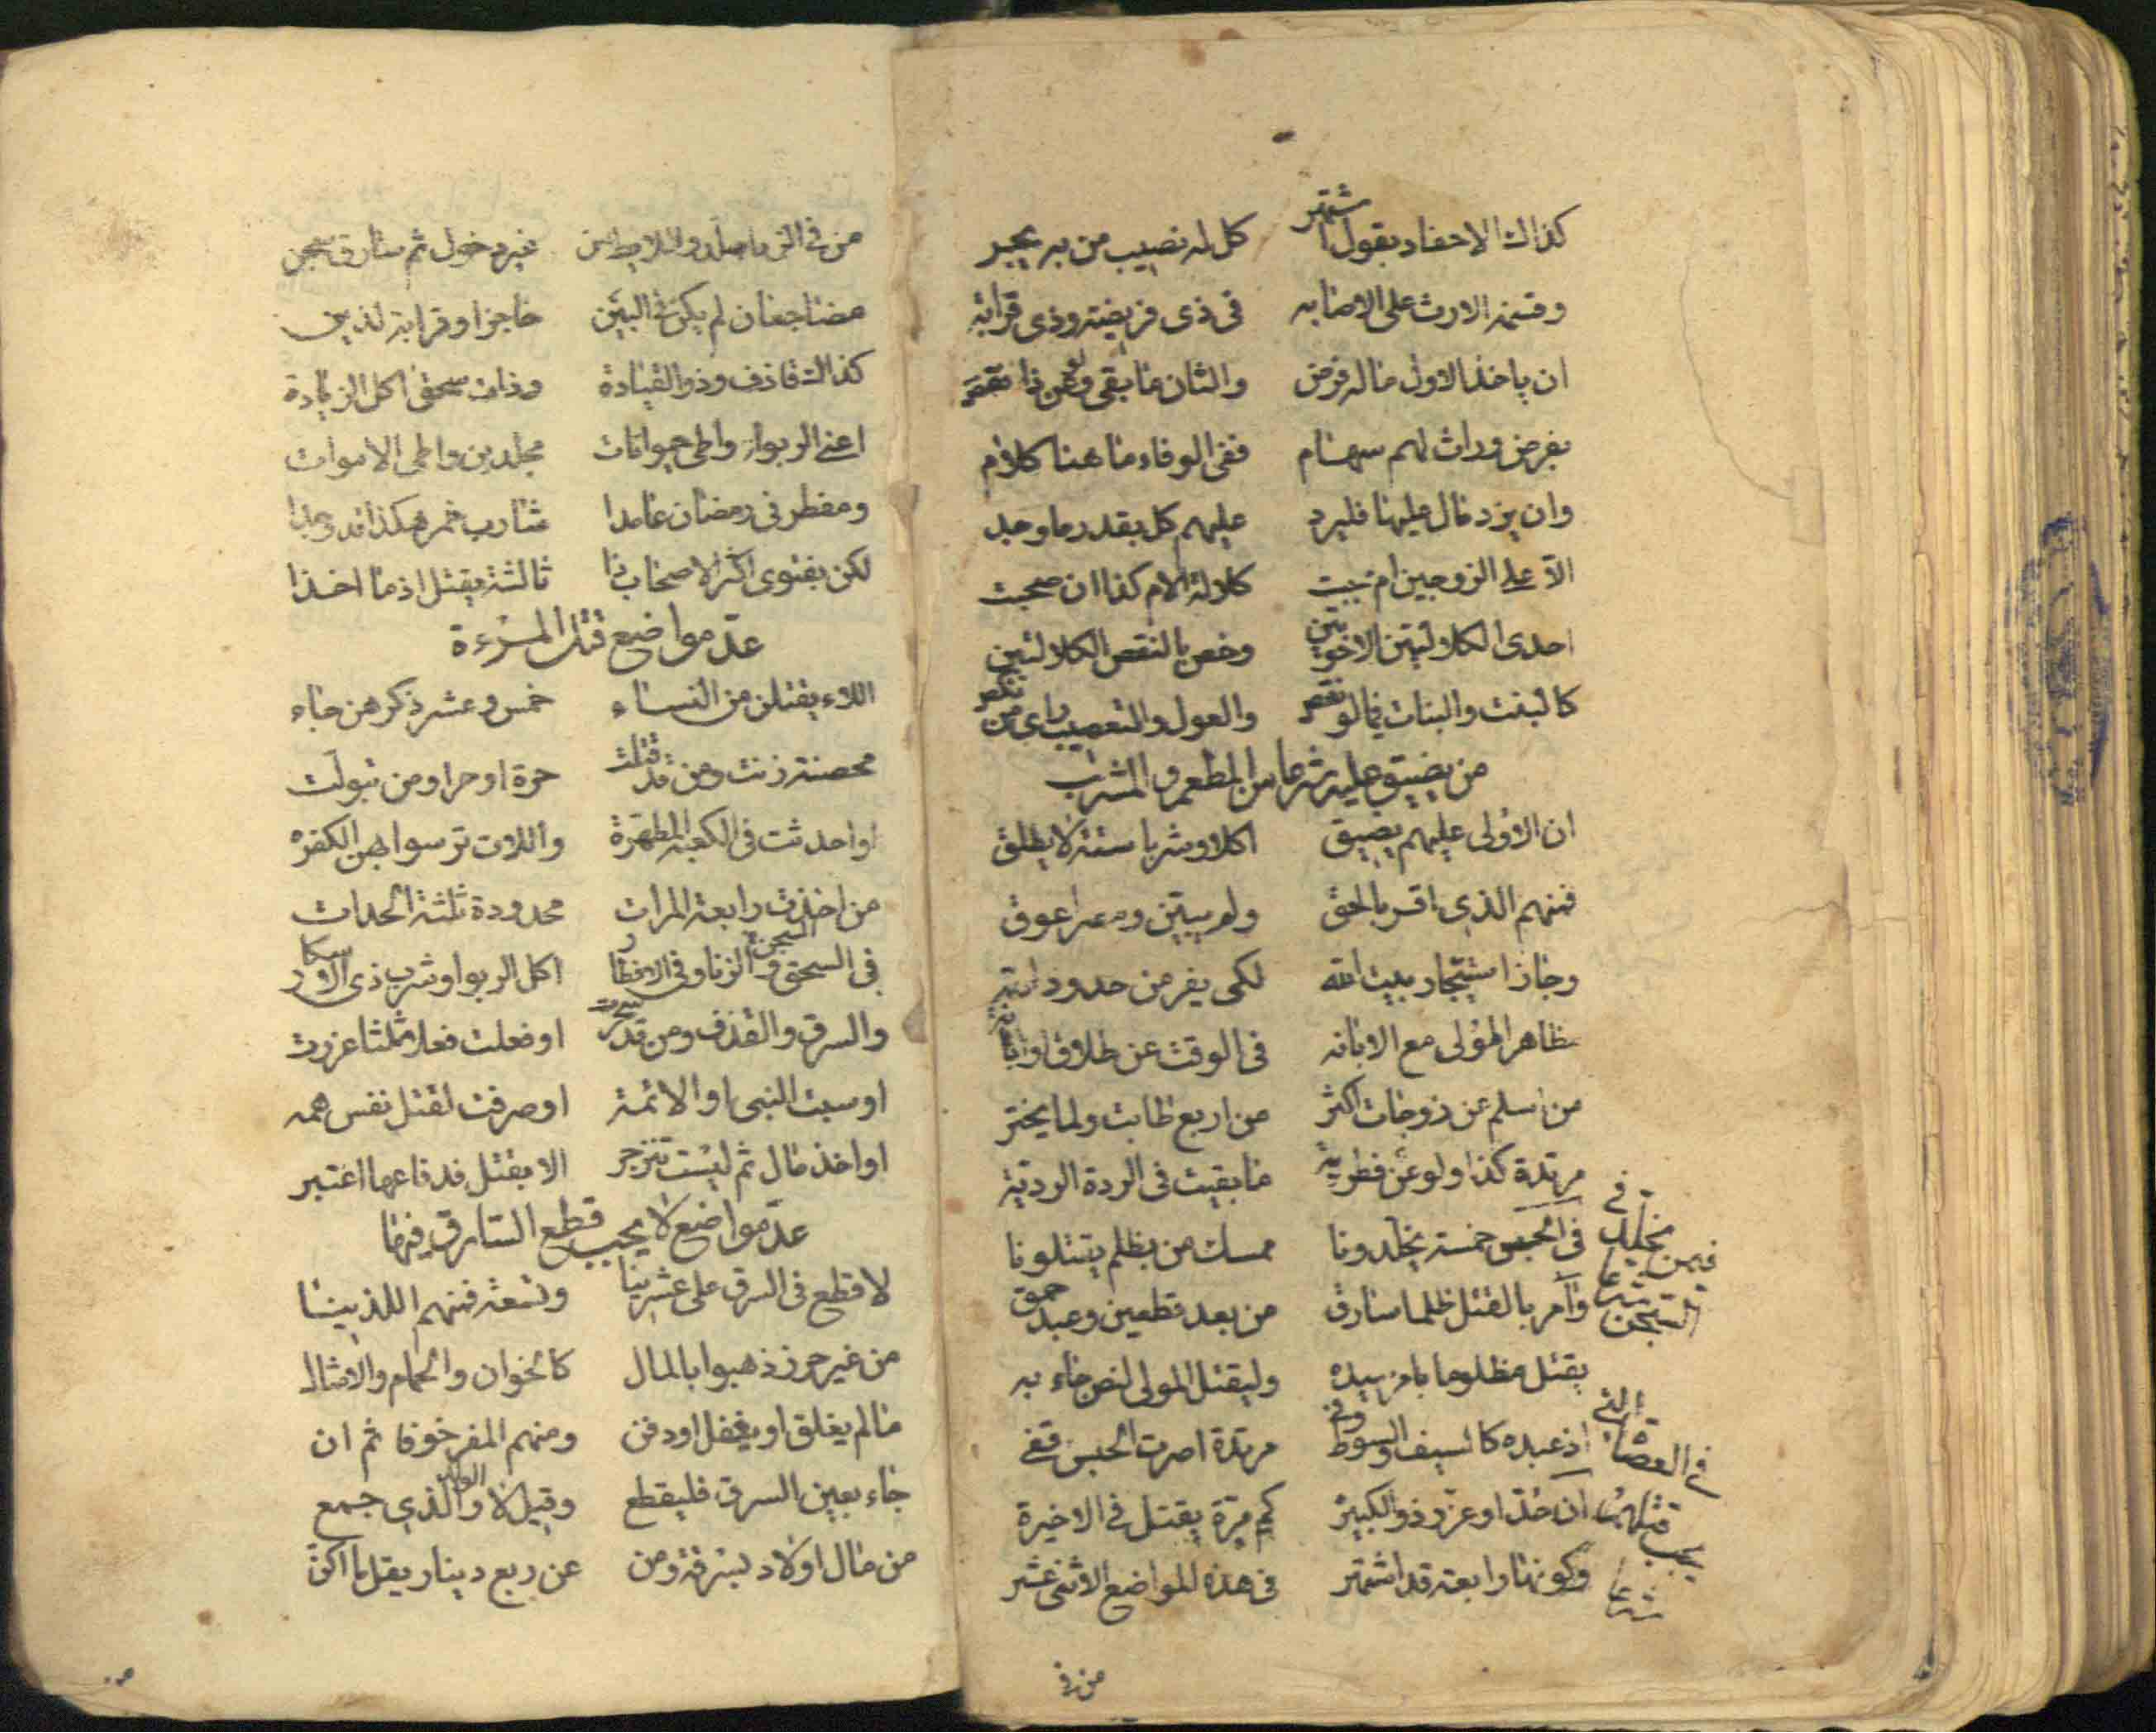 كذاك الاحفاد بقول اشتهر كل له نصيب من به يجبر
وقسمة الارث على الاصابه فى ذى فريضة وذى قرابه
ان ياخذ الاول ماله فرض والثان ما بقى ولو عن ذا نقص
بفرض وراث لهم سهام ففى الوفاء ما هنا كلام
وان يزد مال عليها فليرد عليهم كل بقدر ما وجد
الا على الزوجين ام حجبت كلالة الام كذا ان صحبت
احدى الكلالتين الاخوتين وخص بالنقص الكلالتين
كالبنت والبنات فيما لو نقص والعول والتعصيب راى من نكص
من يضيق عليه شرعا من المطعم والمشرب
ان الاولى عليهم يضيق اكلا وشربا ستة لا يطلق
فمنهم الذى اقر بالحق ولم يبين ومصرا عوق
وجاز استيجار ببيت الله لكى يفر من حدود
مظاهر المولى مع الابانه فى الوقت عن طلاق او
من اسلم عن زوجات اكثر من اربع طابت ولما يختر
مرتدة كذا ولو عن فطريه ما بقيت فى الردة الرديه
فيمن يخلد فى السجن شرعا
فى الحبس خمسة يخلدونا ممسك من بظلم يقتلونا
وآمر بالقتل ظلما سارق من بعد قطعين وعبد
يقتل مظلوما بامر سيده وليقتل المولى لنص جاء به
اذ عبده كالسيف والسوط وفى مرتدة اصرت الحبس قفى
فى العصاة التى يجب قتلهم شرعا
ان حد او عزر ذو الكبيرة كم مرة يقتل فى الاخيرة
وكونها رابعة قد اشتهر فى هذه المواضع الاثنى عشر
من فى
من فى الزنا جلد واللايط من غير دخول ثم سارق سجن
مضاجعان لم يكن فى البين حاجزا وقرابة لذين
كذاك قاذف وذو القيادة وذات سحق اكل الزيادة
اعنى الربوا واطى حيوانات مجلدين واطى الاموات
ومفطر فى رمضان عامدا شارب خمر هكذا قد وجدا
لكن بفتوى اكثر الاصحاب ذا ثالثة يقتل اذ ما اخذا
عد مواضع قتل المرءة
اللاء يقتلن من النساء خمس وعشر ذكرهن جاء
محصنة زنت ومن قد قتلت حرة او حرا ومن تبولت
او احدثت فى الكعبة المطهرة واللات ترسوا بهن الكفرة
من اخذت رابعة المرات محدودة ثلثة الحدات
فى السحق والزنا وفى الافطار اكل الربوا وشرب ذى الاسكار
والسرق والقذف ومن قد سحرت او فعلت فعلا مثلثا عزرت
او سبت النبى او الائمة او صرفت لقتل نفس همه
او اخذ مال ثم ليست تنزجر الا بقتل فدفاعها اعتبر
عد مواضع لا يجب قطع السارق فيها
لا قطع فى السرق على عشرينا وتسعة فمنهم اللذينا
من غير حرز ذهبوا بالمال كالخوان والحمام والامثال
ما لم يغلق او يقفل او دفن ومنهم المقر خوفا ثم ان
جاء بعين السرق فليقطع وقيل لا والوالد الذى جمع
من مال اولاد بسرقة ومن عن ربع دينار يقل ما اكن